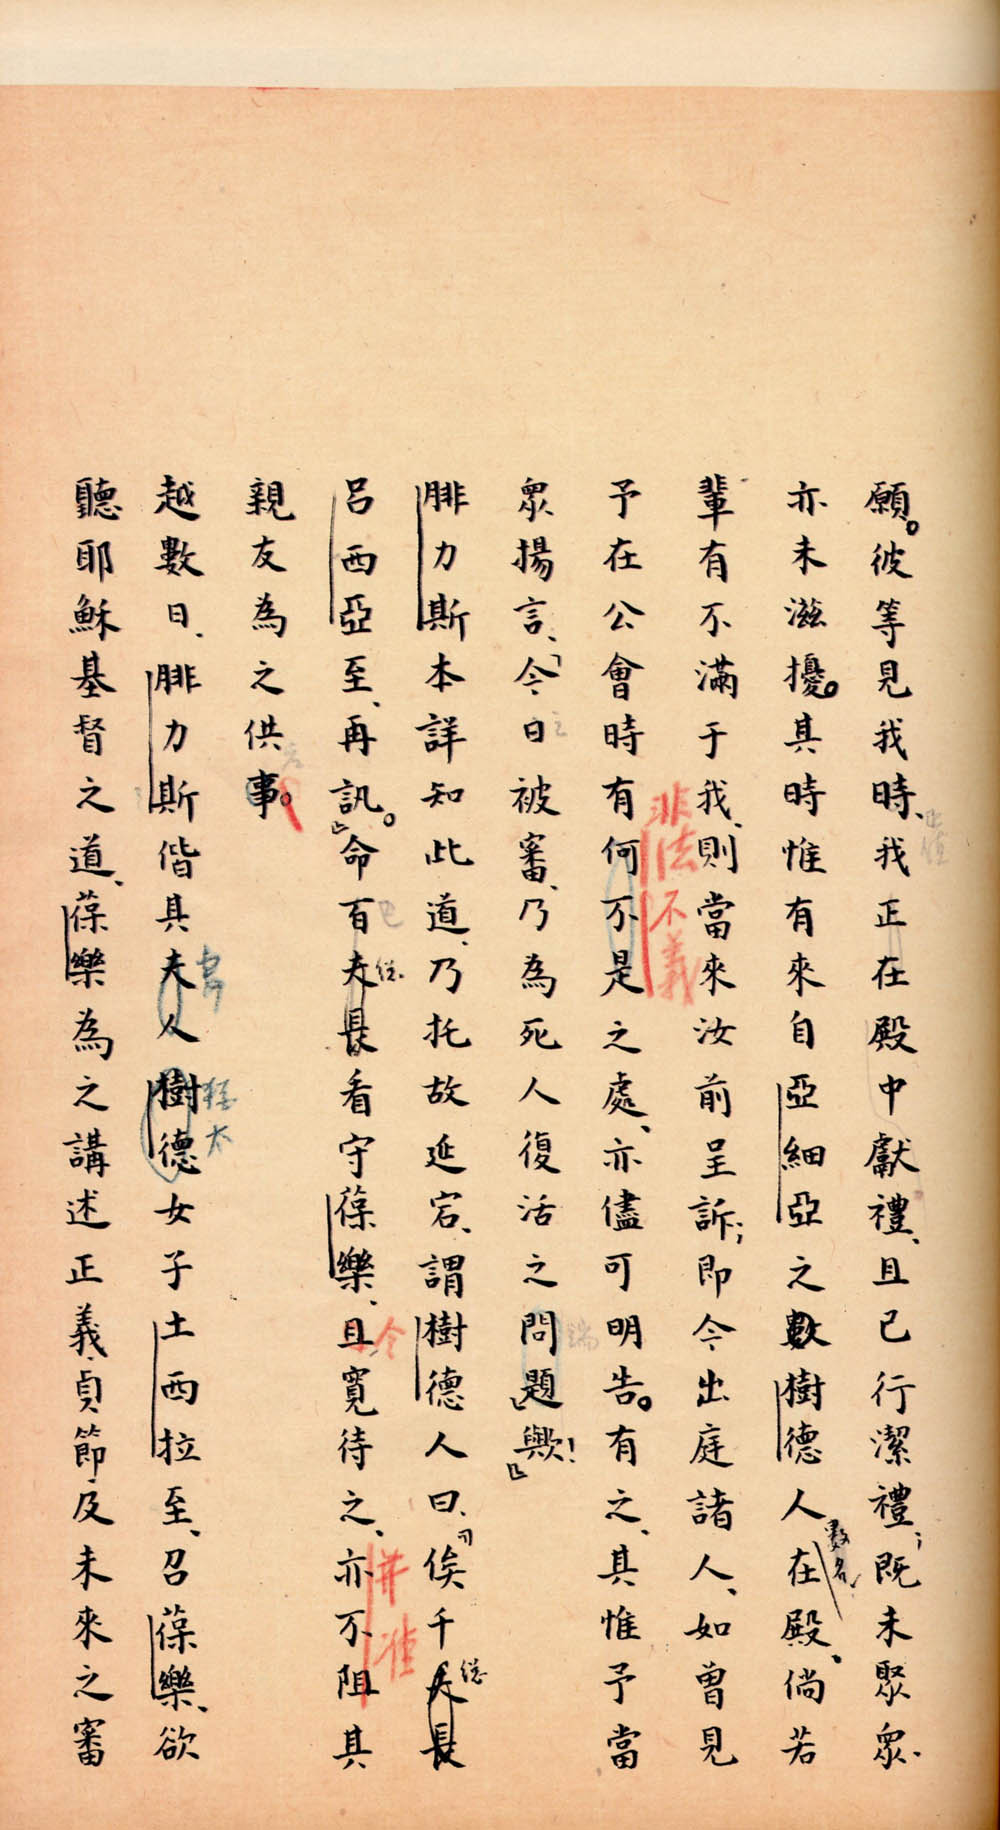 願。彼等見我時、我正在殿中獻禮、且已行潔禮；既未聚眾、
亦未滋擾。其時惟有來自亞細亞之數樹德人在殿、倘若
數名
輩有不滿于我、則當來汝前呈訴；即今出庭諸人、如曾見
非法不義
予在公會時有何不是之處、亦儘可明告。有之、其惟予當
眾揚言、「今日被審、乃為死人復活之問題」歟！』
端
腓力斯本詳知此道、乃托故延宕、謂樹德人曰、『俟千夫長
總
呂西亞至、再訊。』命百夫長看守葆樂、且寬待之、亦不阻其
總
令
并准
親友為之供事。
越數日、腓力斯偕其夫人樹德女子土西拉至、召葆樂、欲
妻
猶太
聽耶穌基督之道、葆樂為之講述正義、貞節、及未來之審